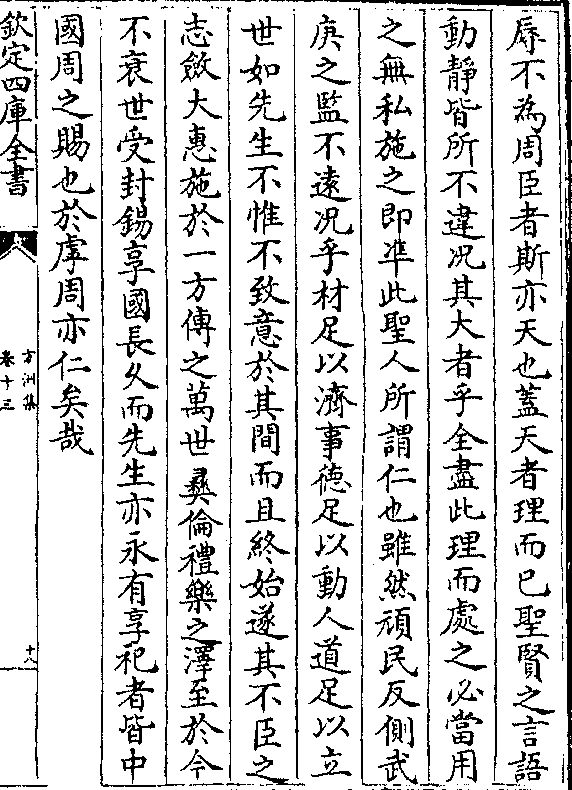 辱不為周臣者斯亦天也蓋天者理而已聖賢之言語
動靜皆所不違况其大者乎全盡此理而處之必當用
之無私施之即凖此聖人所謂仁也雖然頑民反側武
庚之監不遠况乎材足以濟事德足以動人道足以立
世如先生不惟不致意於其間而且終始遂其不臣之
志斂大惠施於一方傳之萬世彛倫禮樂之澤至於今
不衰世受封錫享國長久而先生亦永有享祀者皆中
國周之賜也於虖周亦仁矣哉
欽定四庫全書
方洲集
卷十三
十八